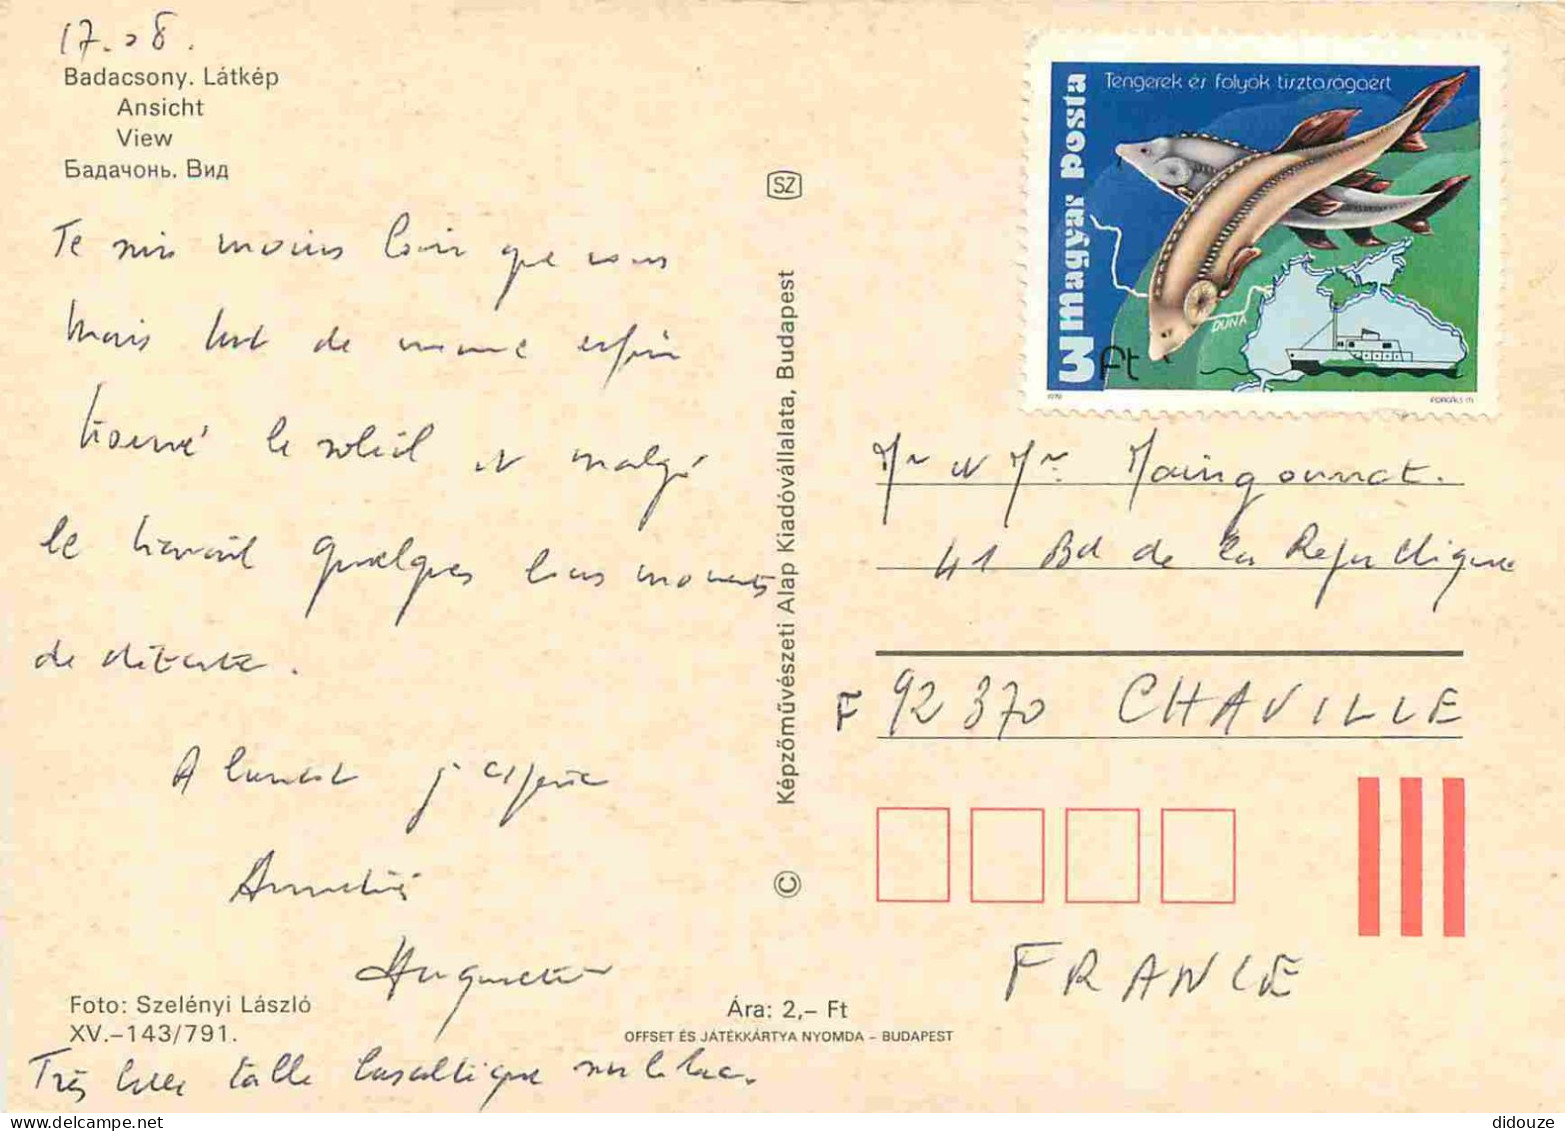 17.08.
Badacsony. Látkép
Ansicht
View
Бадачонь. Вид
Je suis moins loin que vous
Mais tout de même enfin
trouvé le soleil et malgré
le travail quelques bons moments
de détente.
A bientôt j'espère
Amitiés
Huguette
Foto: Szelényi László
XV.–143/791.
Très belle table basaltique sur le lac.
SZ
Képzőművészeti Alap Kiadóvállalata, Budapest
©
Ára: 2,– Ft
OFFSET ÉS JÁTÉKKÁRTYA NYOMDA – BUDAPEST
Tengerek és folyók tisztaságáért
magyar posta
3 Ft
DUNA
1979
Mr et Mr Maingonnat.
41 Bd de la République
F 92 370 CHAVILLE
FRANCE
didouze